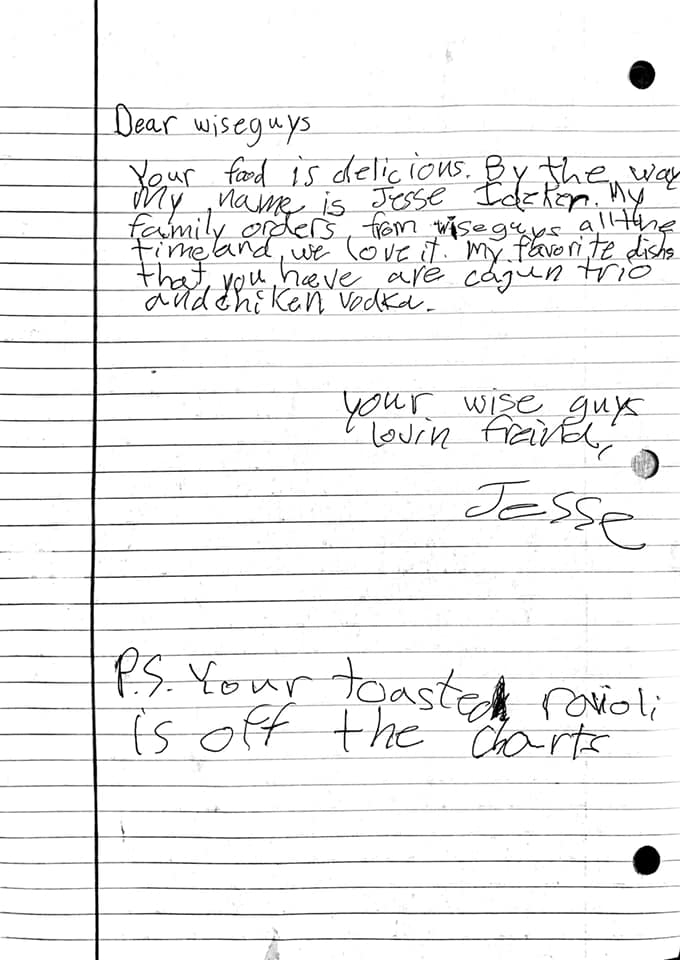 Dear wiseguys
Your food is delicious. By the way
My name is Jesse Ideker. My
family orders from wiseguys all the
time and we love it. My favorite dishs
that you have are cajun trio
and chiken vodka.
your wise guys
lovin freind,
Jesse
P.S. Your toasted ravioli
is off the charts